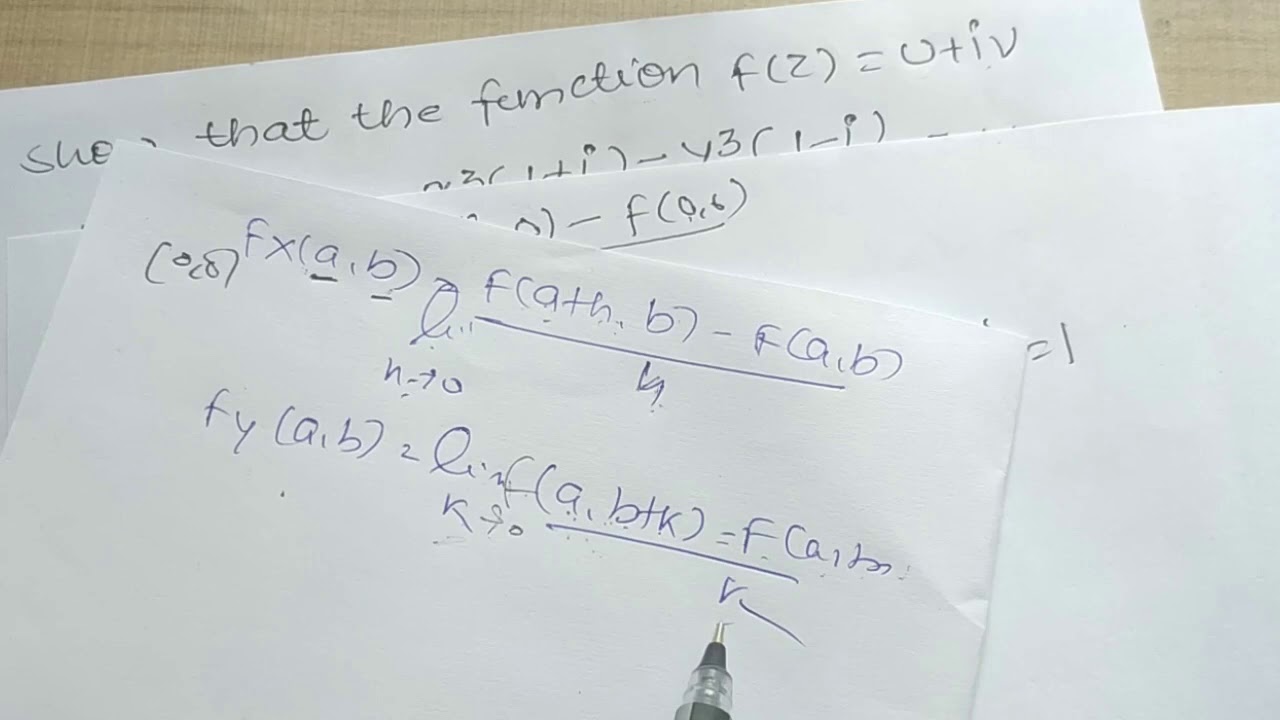 show that the function f(z) = u+iv
x3(1+i) - y3(1-i)
0) - f(0,0)
(0,0) fx(a,b) = lim f(a+h, b) - f(a,b)
h→0 h
=1
fy(a,b) = lim f(a, b+k) = f(a,b)
k→0 k